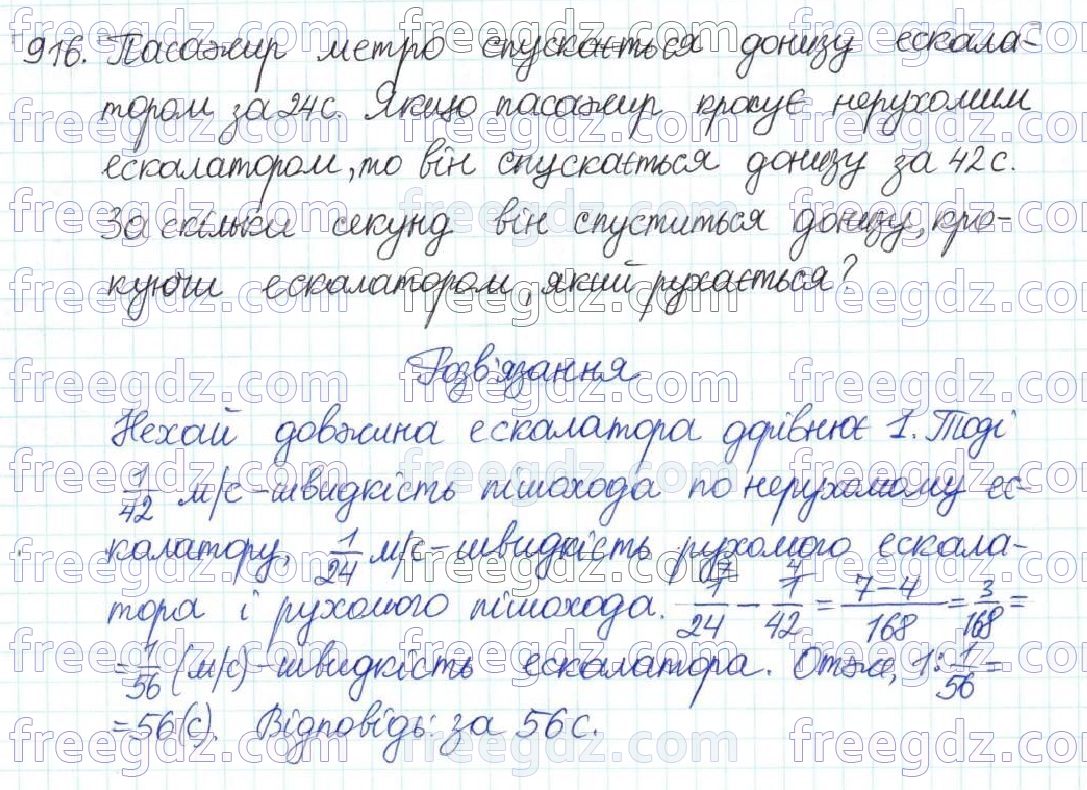 916. Пасажир метро спускається донизу ескала-
тором за 24 с. Якщо пасажир крокує нерухомим
ескалатором, то він спускається донизу за 42 с.
За скільки секунд він спуститься донизу, кро-
куючи ескалатором, який рухається?
Розв'язання
Нехай довжина ескалатора дорівнює 1. Тоді
1/42 м/с - швидкість пішохода по нерухомому ес-
калатору, 1/24 м/с - швидкість рухомого ескала-
тора і рухомого пішохода. 1/24 (7) - 1/42 (4) = 7-4/168 = 3/168 =
= 1/56 (м/с) - швидкість ескалатора. Отже, 1 : 1/56 =
= 56 (с). Відповідь: за 56 с.
freegdz.com